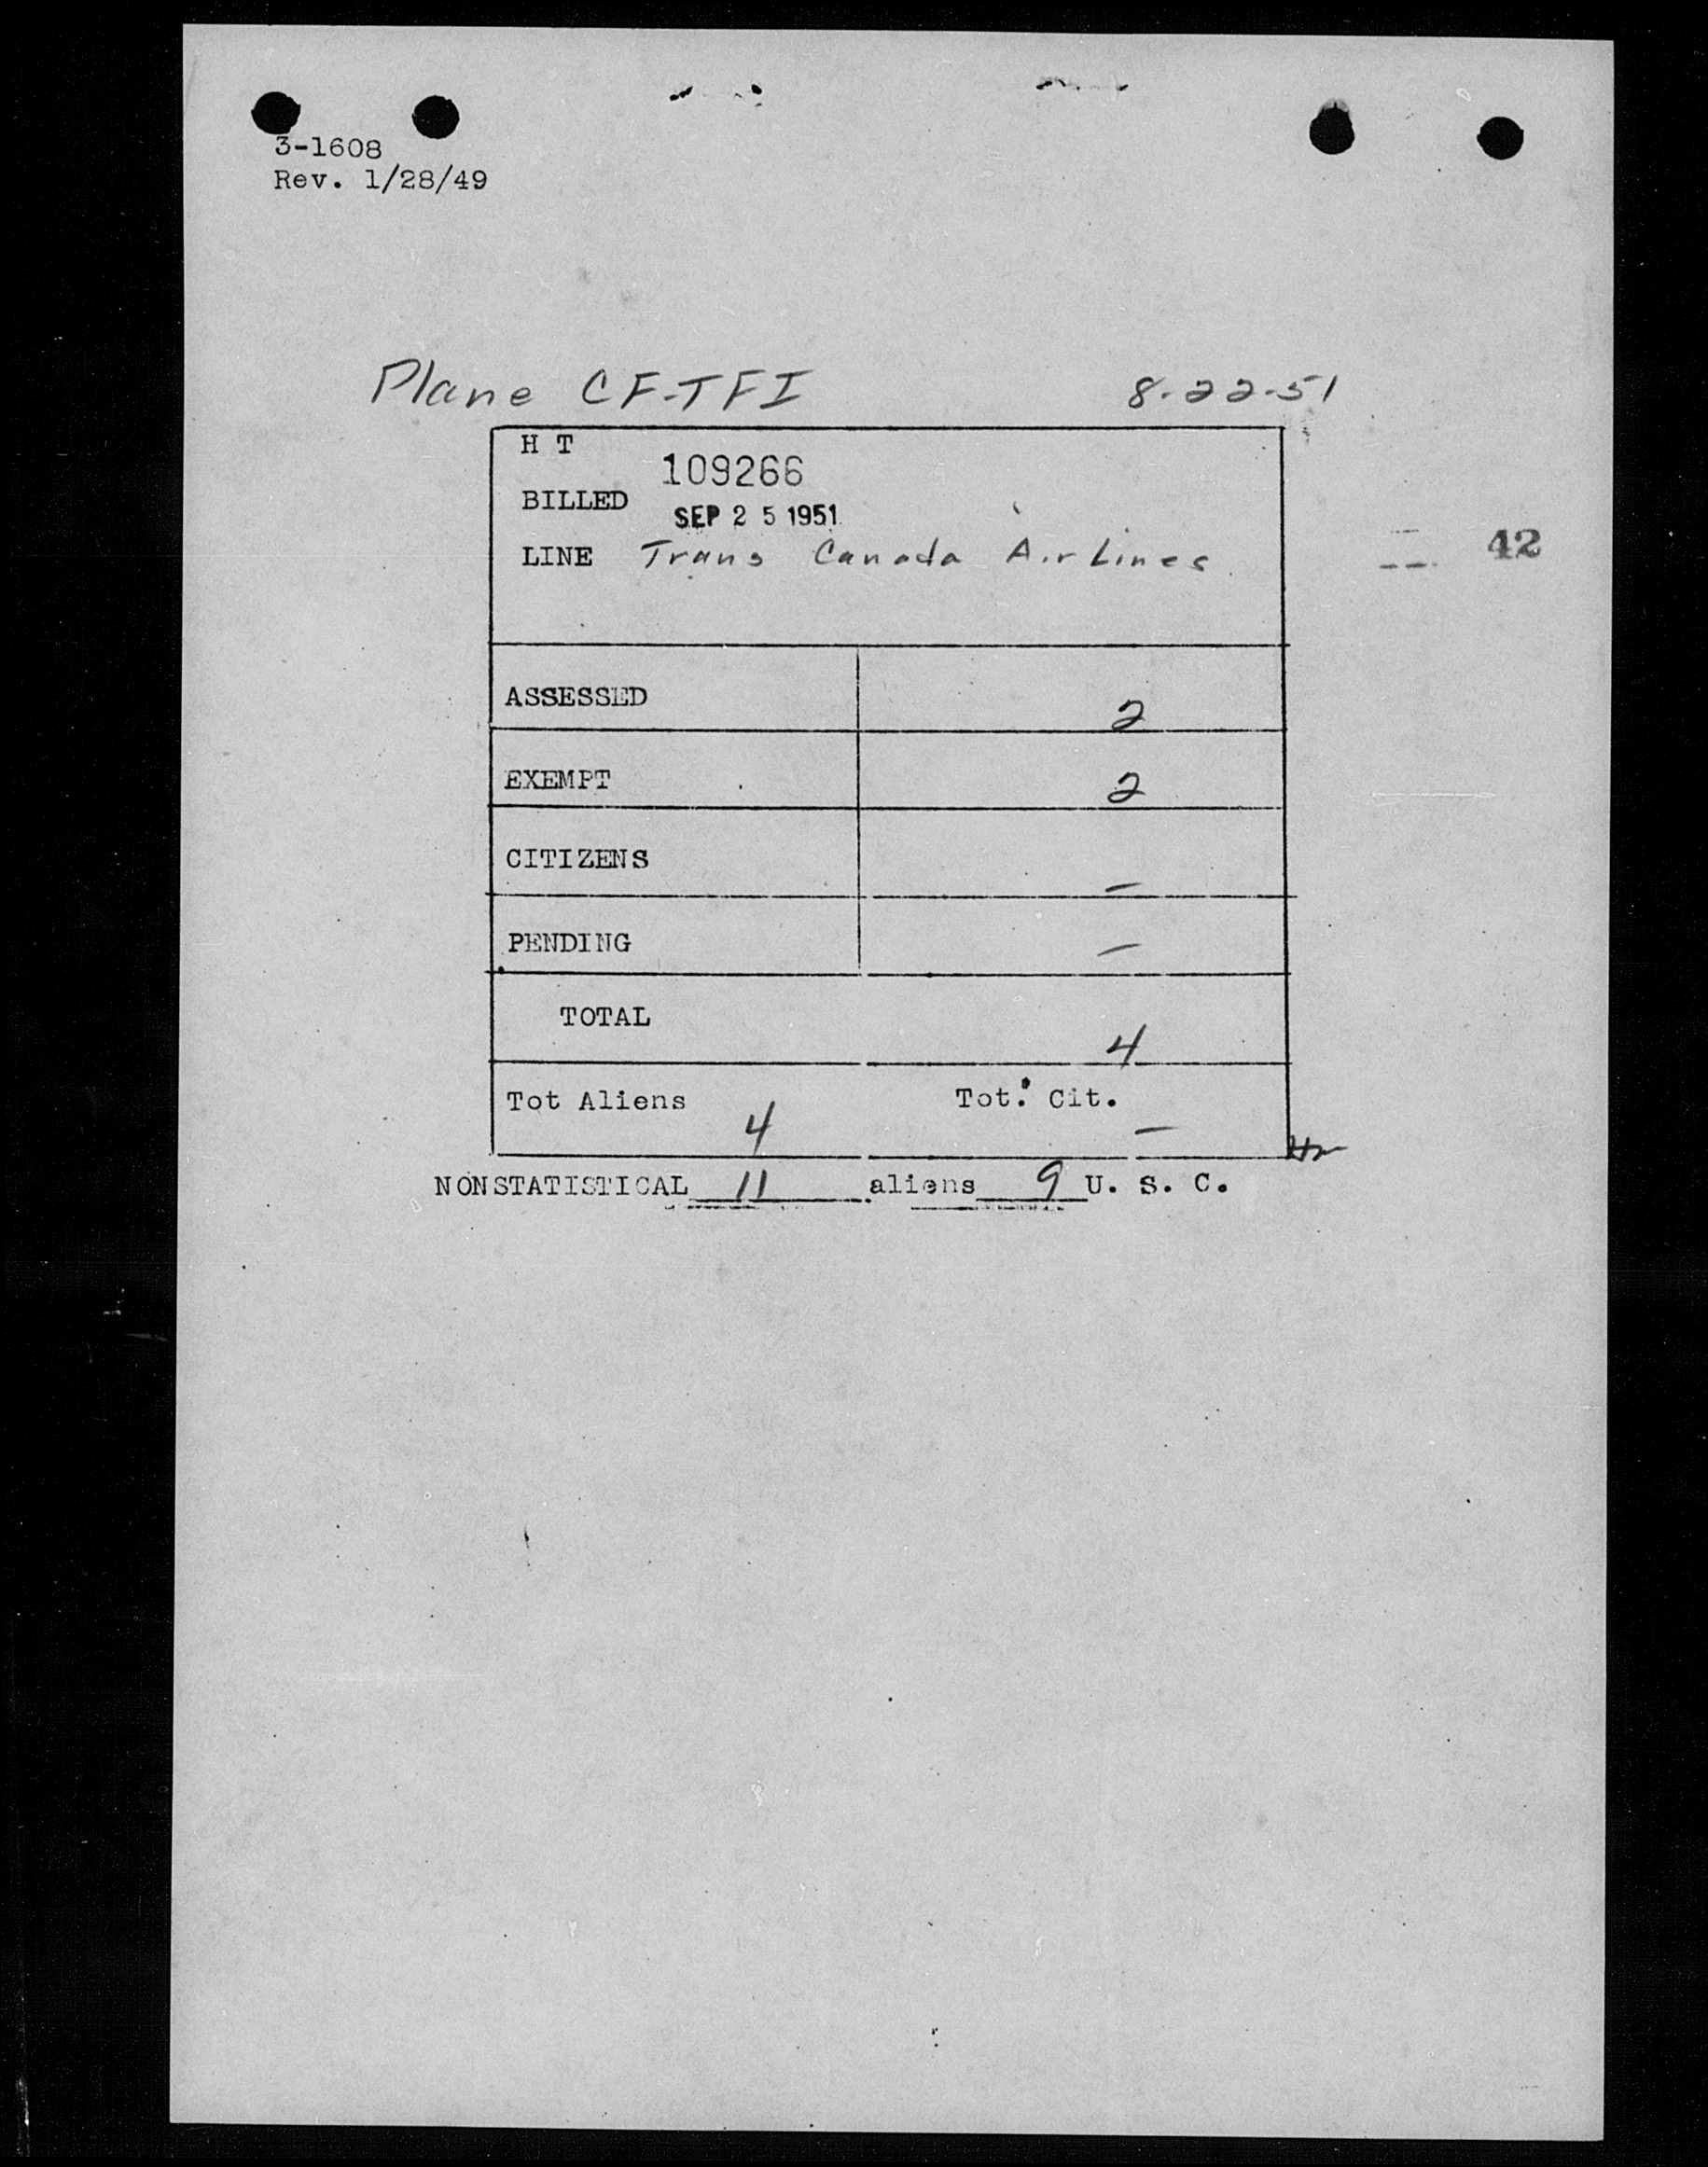 3-1608
Rev. 1/28/49
Plane CF-TFI 8-22-51
H T
109266
BILLED
SEP 25 1951
LINE Trans Canada Air Lines
42
ASSESSED 2
EXEMPT 2
CITIZENS —
PENDING —
TOTAL 4
Tot Aliens 4 Tot. Cit. —
NONSTATISTICAL 11 aliens 9 U. S. C.